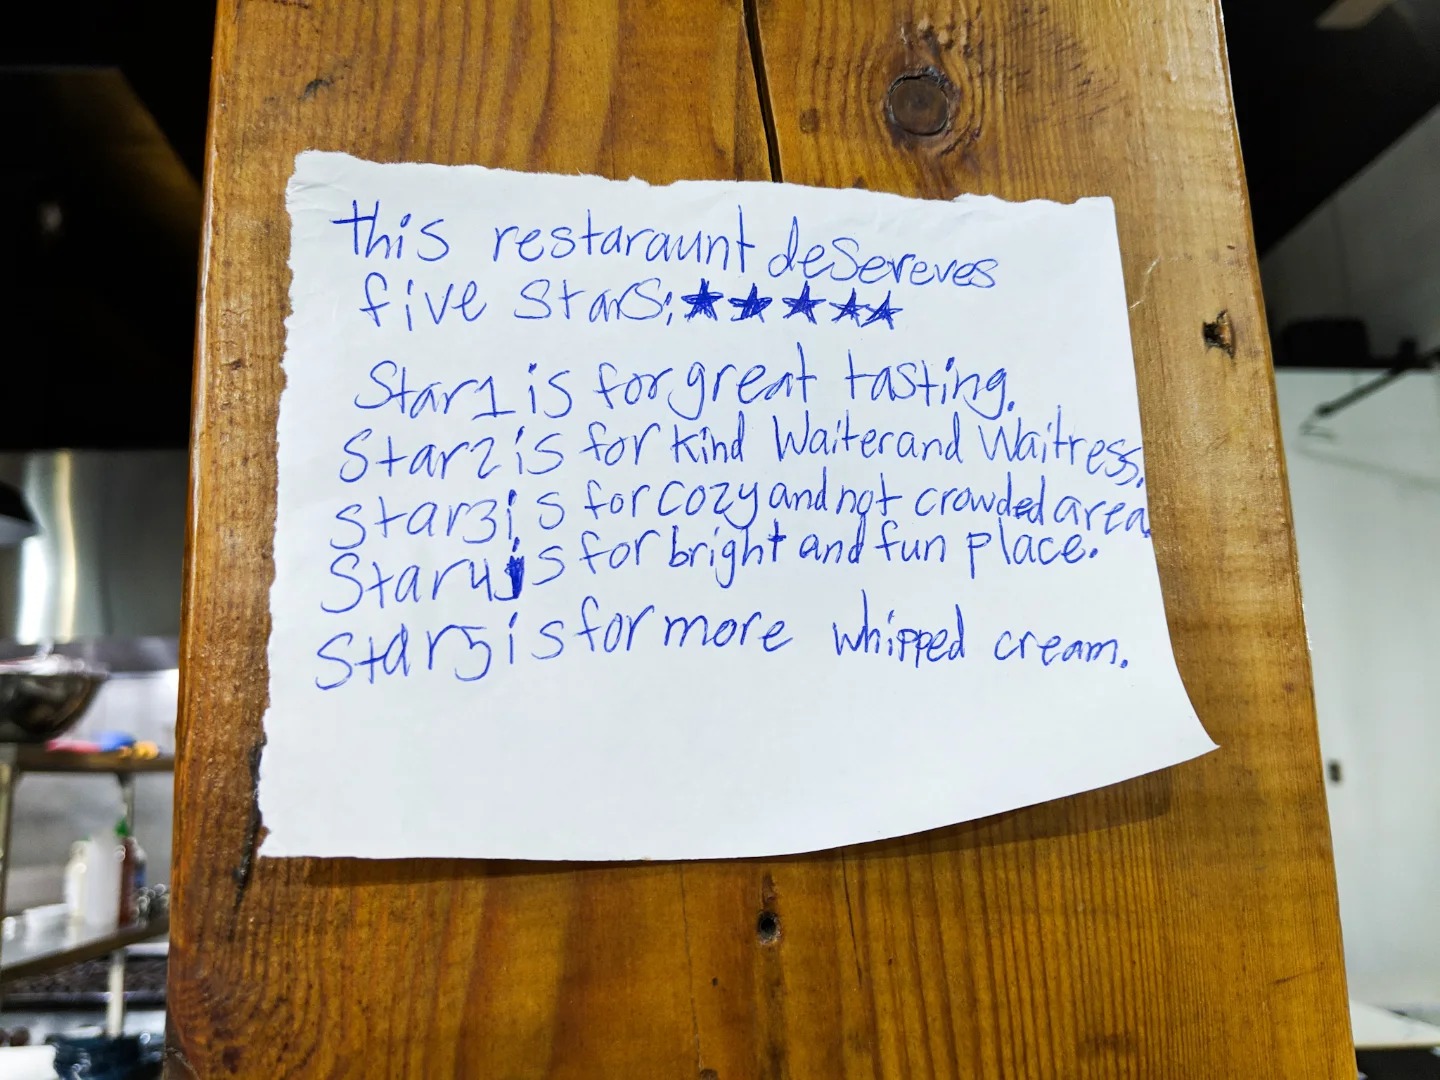 this restaraunt desereves
five stars: ★★★★★
Star 1 is for great tasting.
Star 2 is for kind Waiter and Waitress.
star 3 is for cozy and not crowded area.
Star 4 is for bright and fun place.
Star 5 is for more whipped cream.